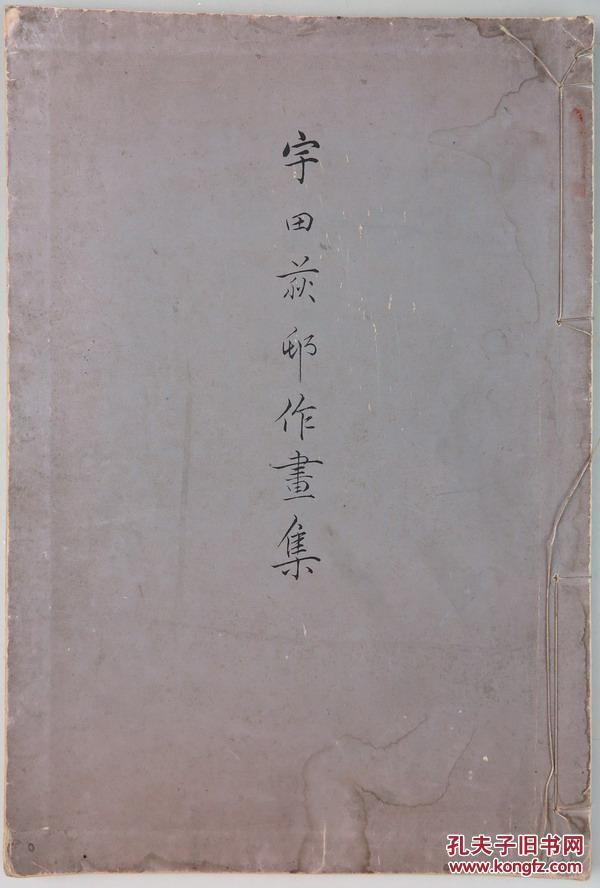 宇田荻邨作畫集
孔夫子旧书网
www.kongfz.com